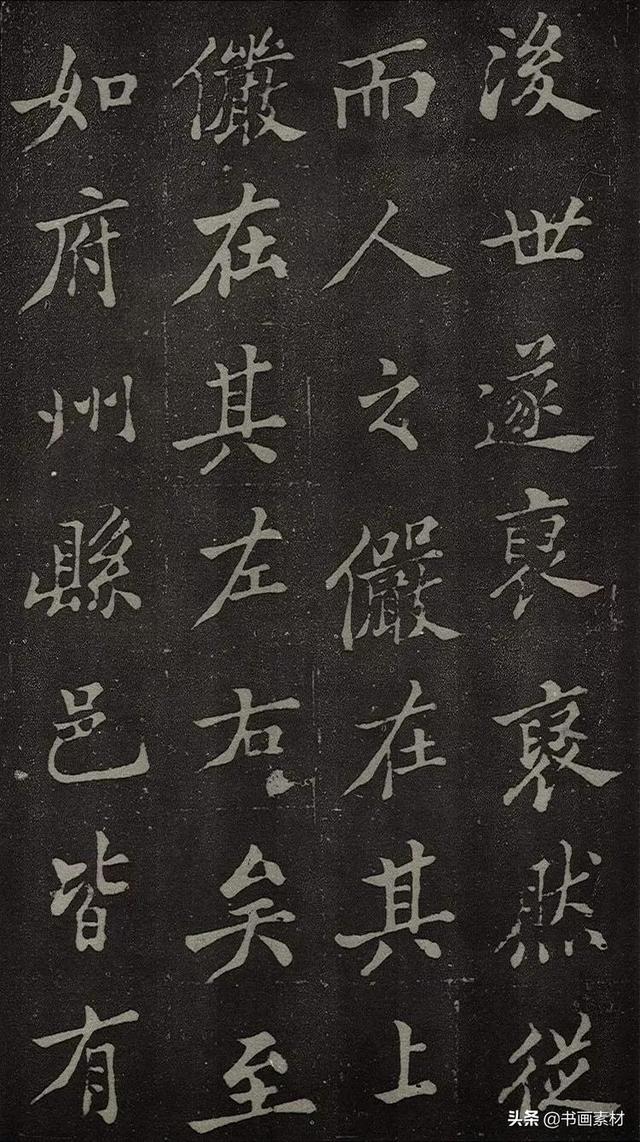 後世遂然從
而人之儼在其上
儼在其左右矣至
如府州縣邑皆有
头条 @书画素材